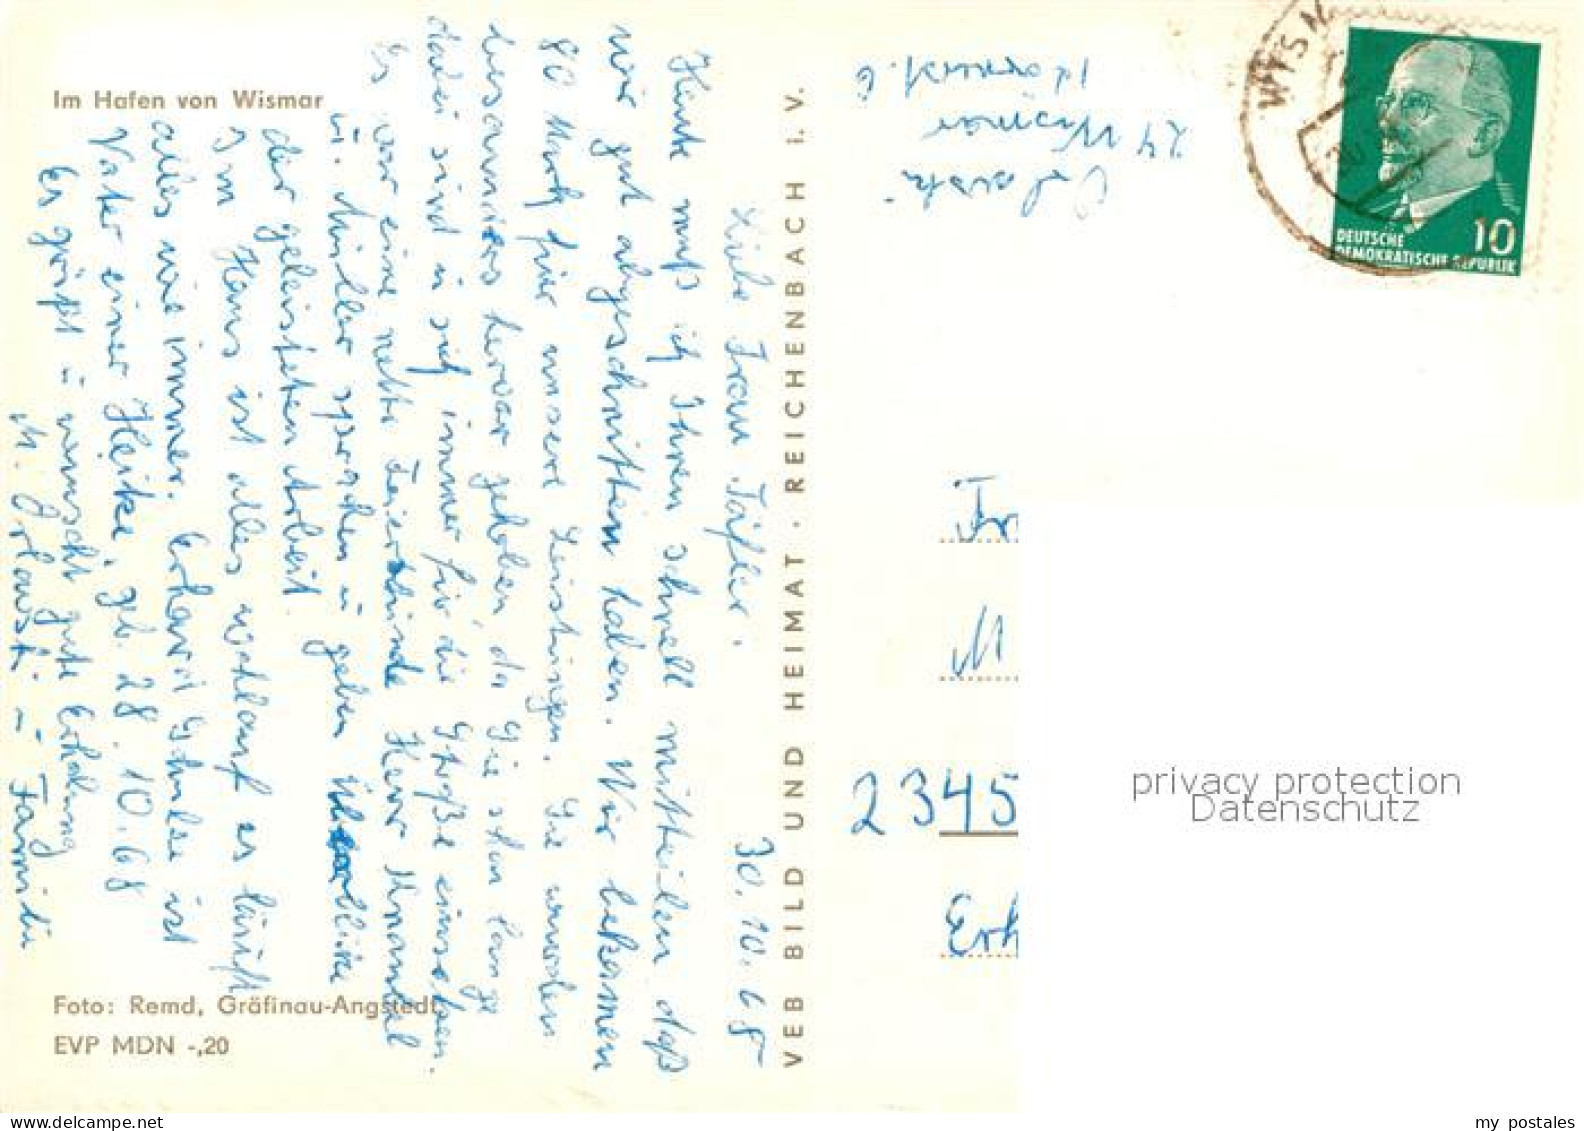 Im Hafen von Wismar
30.10.68
Liebe Frau
Heute muß ich Ihnen schnell mitteilen daß
wir gut abgeschnitten haben. Wir bekamen
80 Mark für unsere Leistungen. Sie wurden
besonders hervor gehoben, da Sie schon lange
dabei sind u sich immer für die einsetzen.
Es war eine nette Feierstunde Herr
u. Müller sprachen u gaben
der geleisteten Arbeit.
Im Haus ist alles es läuft
alles wie immer. Erhard ist
Vater einer Heike, geb. 28.10.68
Es grüßt u wünscht gute Erholung
M. Orlowski u Familie
Foto: Remd, Gräfinau-Angstedt
EVP MDN -,20
VEB BILD UND HEIMAT · REICHENBACH I. V.
Orlowski
24 Wismar
WISM
DEUTSCHE
DEMOKRATISCHE REPUBLIK
10
Fr
M
2345
Erh
privacy protection
Datenschutz
my postales